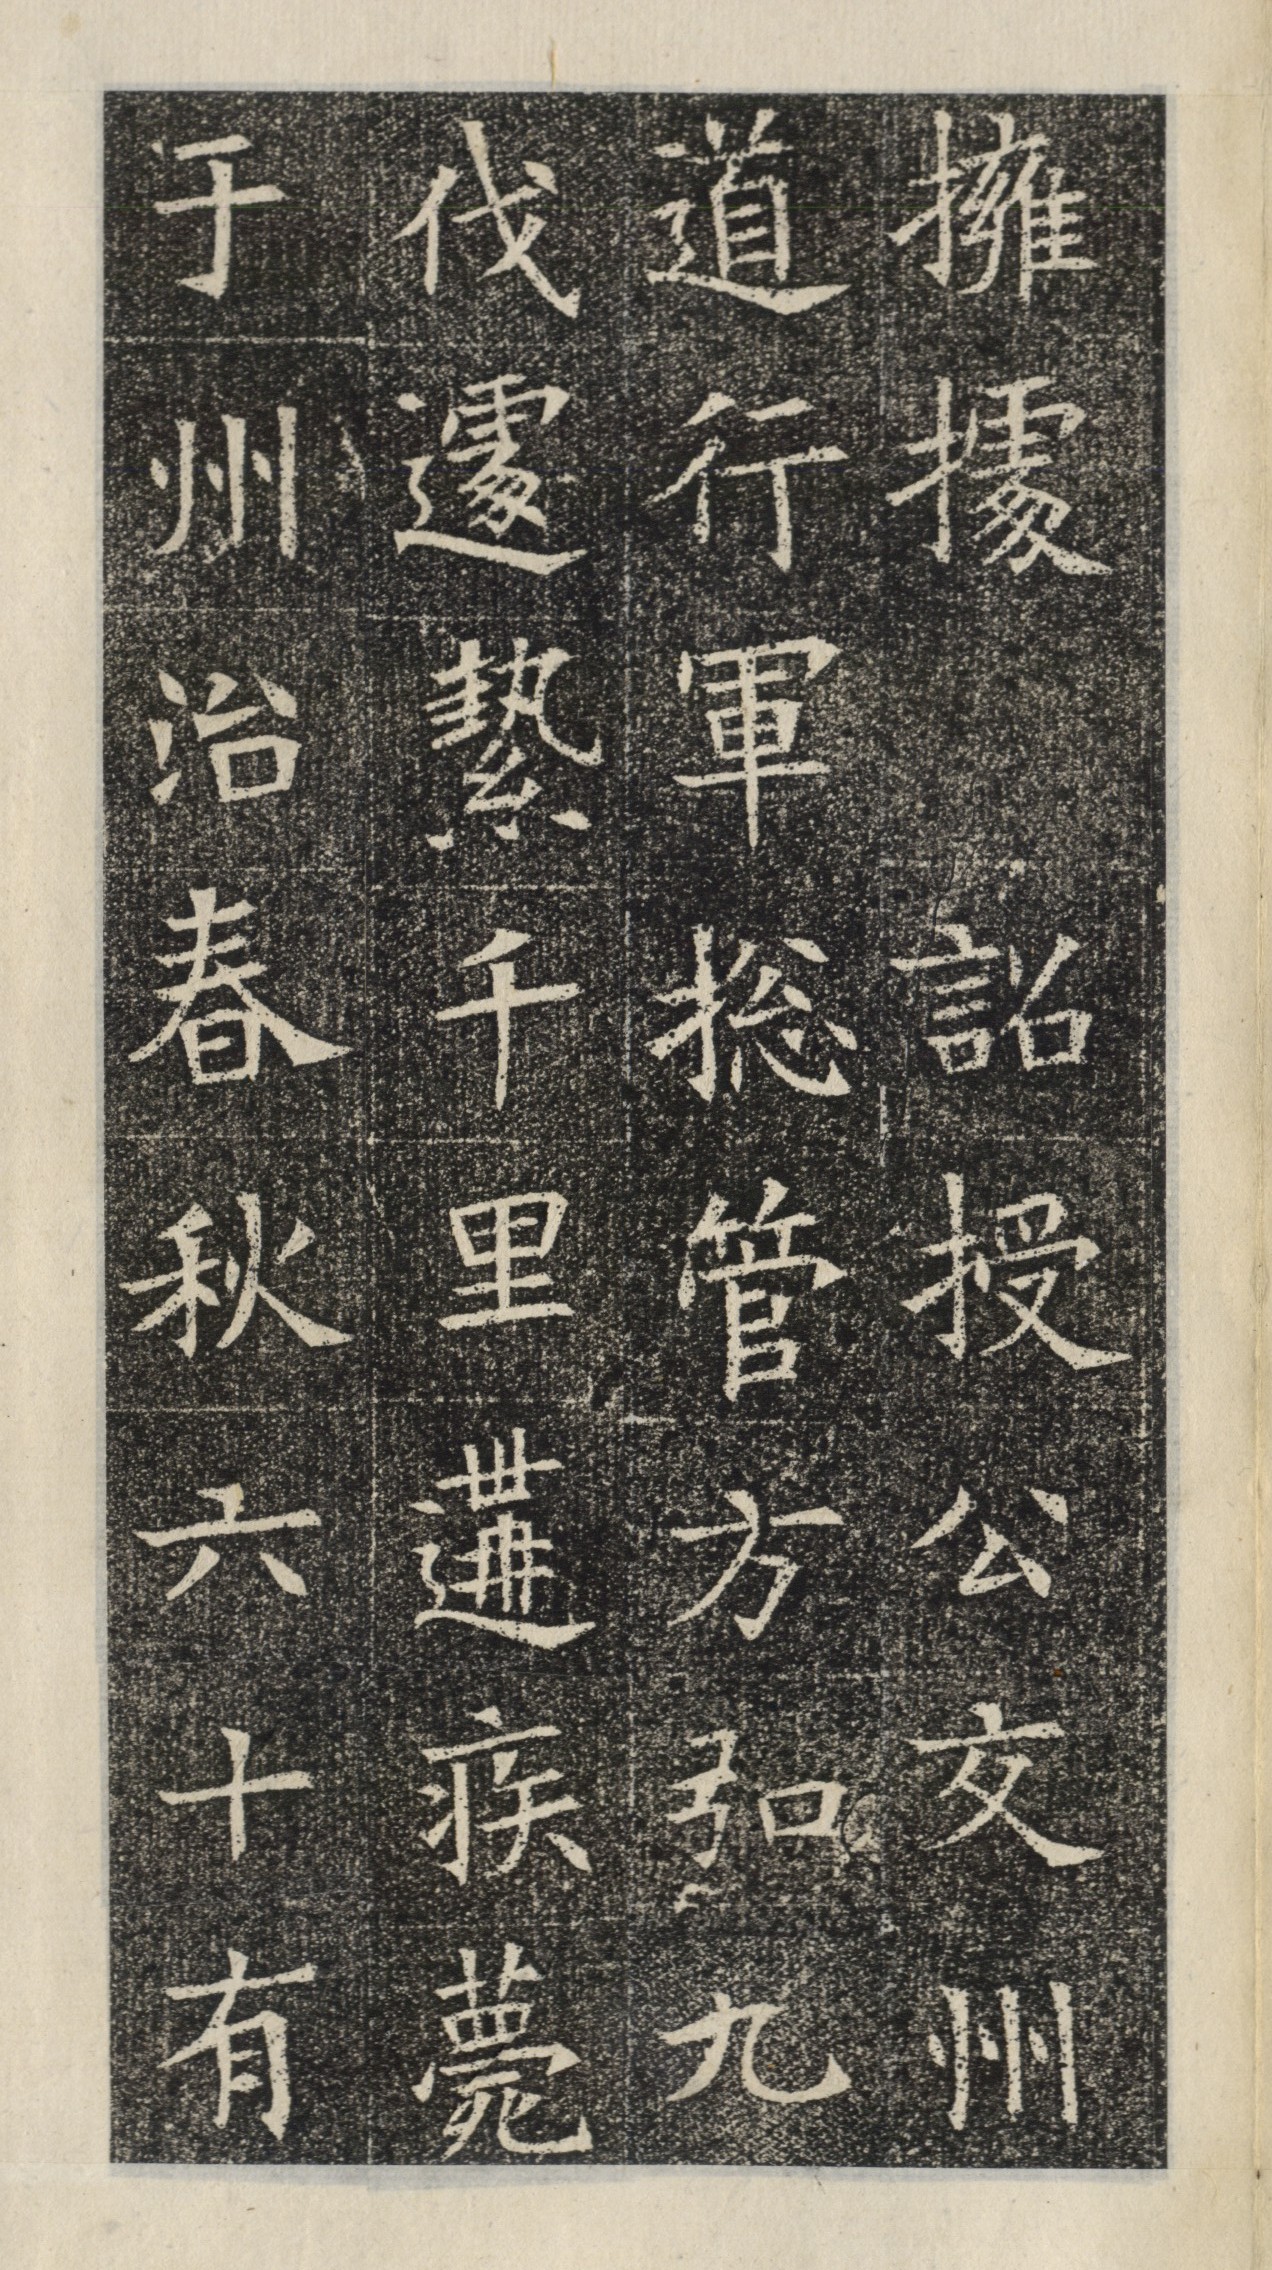 擁據　詔授公交州
道行軍総管方弘九
伐遽縶千里遘疾薨
于州治春秋六十有